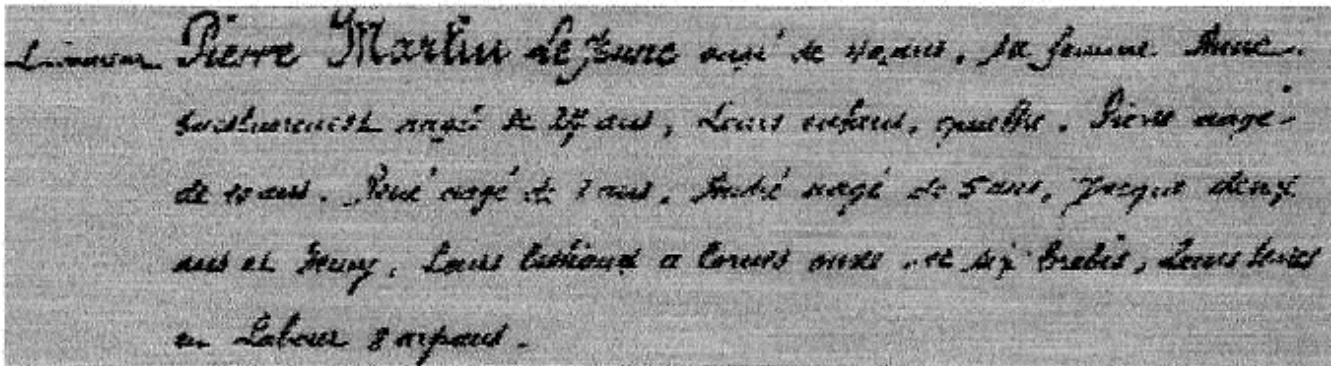 Pierre Martin Le Jeune aagé de 40 ans, sa femme Anne
aagée de 27 ans, Leurs enfans, quattre. Pierre aagé
de 10 ans. René aagé de 7 ans, André aagé de 5 ans, Jacque deux
ans et demy, Leurs bestiaux a cornes onze, et six brebis, Leurs terres
en Labour 8 arpans.